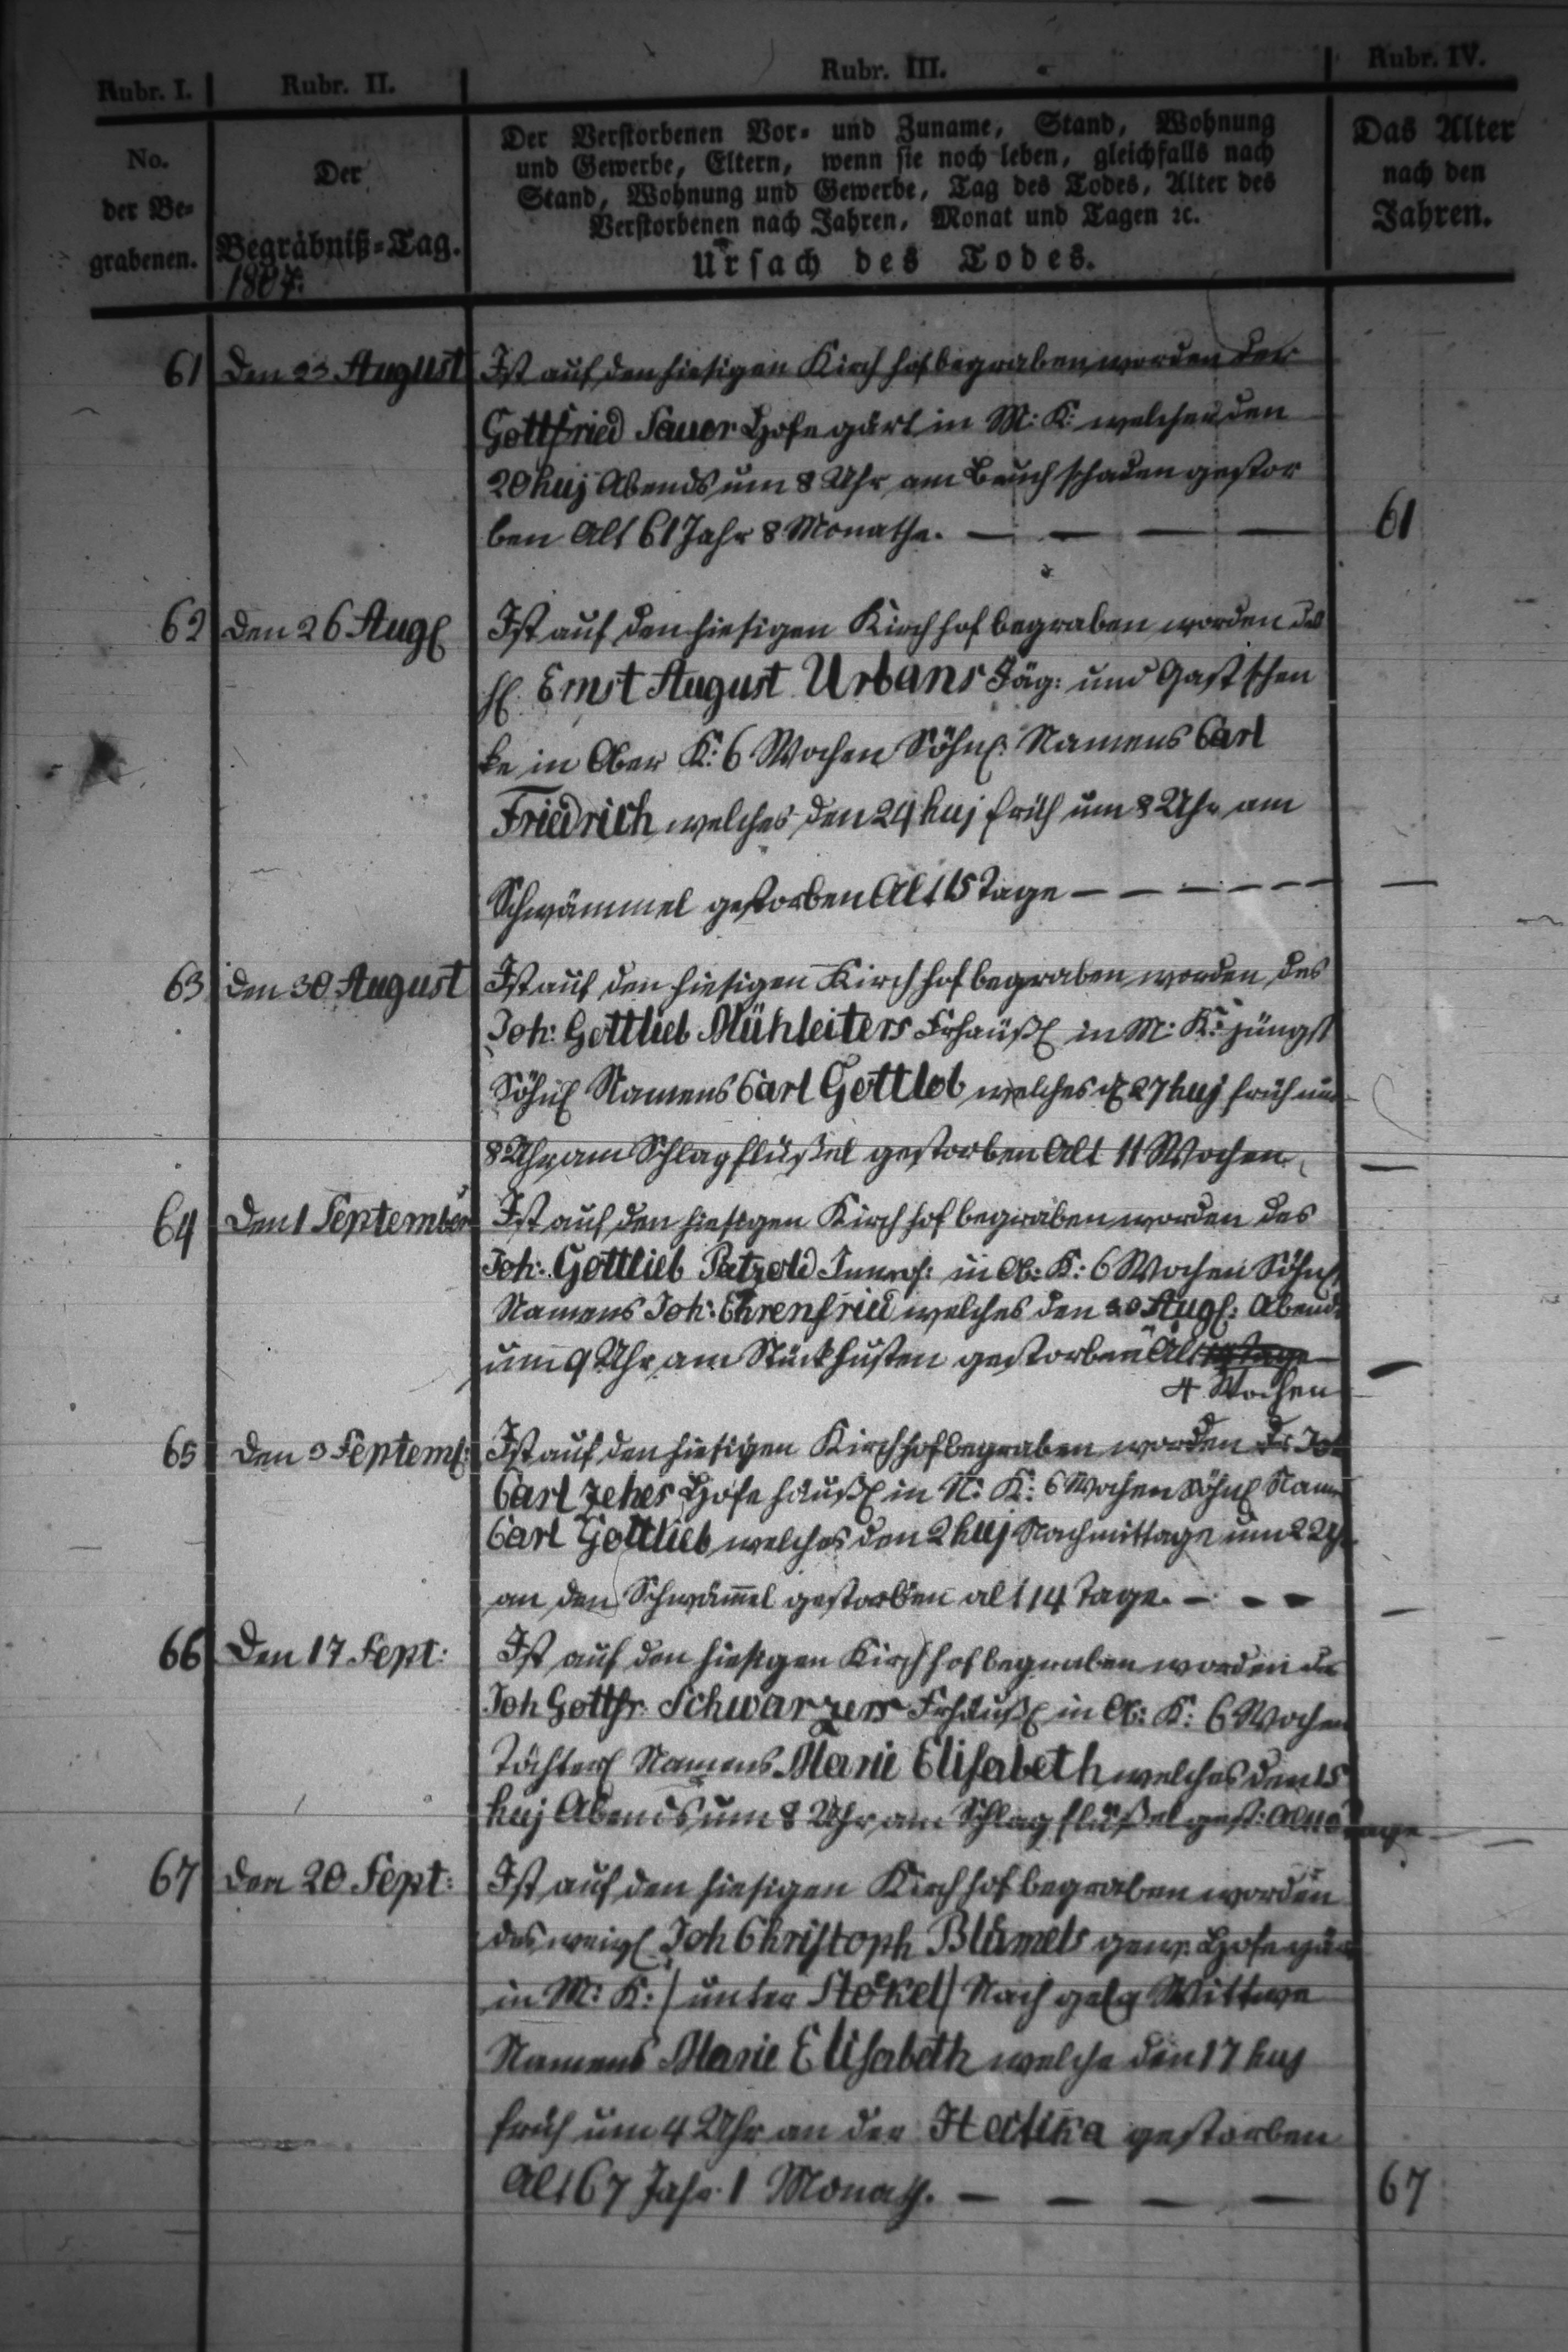 Rubr. I. Rubr. II. Rubr. III. Rubr. IV.
No.
der Be-
grabenen.
Der
Begräbniß-Tag.
1807.
Der Verstorbenen Vor- und Zuname, Stand, Wohnung
und Gewerbe, Eltern, wenn sie noch leben, gleichfalls nach
Stand, Wohnung und Gewerbe, Tag des Todes, Alter des
Verstorbenen nach Jahren, Monat und Tagen ꝛc.
Ursach des Todes.
Das Alter
nach den
Jahren.
61 Den 23 August Ist auf den hiesigen Kirchhof begraben worden der
Gottfried Sauer Hofegärt in M: K: welcher den
20 huj Abends um 8 Uhr am Bruchschaden gestor
ben Alt 61 Jahr 8 Monathe. — — — — 61
62 Den 26 Aug Ist auf den hiesigen Kirchhof begraben worden des
H. Ernst August Urbans Jäg: und Gastschen
ke in Ober K: 6 Wochen Söhnl: Namens Carl
Friedrich welches den 24 huj früh um 8 Uhr am
Schwämmel gestorben Alt 15 Tage — — — — — — —
63 Den 30 August Ist auf den hiesigen Kirchhof begraben worden des
Joh: Gottlieb Mühleiters Frhäußl in M: K: jüngst
Söhnl Namens Carl Gottlob welches d 27 huj früh um
8 Uhr am Schlagflüßel gestorben Alt 11 Wochen —
64 Den 1 September Ist auf den hiesigen Kirchhof begraben worden des
Joh: Gottlieb Patzold Inwoh: in Ob: K: 6 Wochen Söhnl
Namens Joh: Ehrenfried welches den 30 Aug: Abends
um 9 Uhr am Stückhusten gestorben Alt
4 Wochen —
65 Den 3 Septemb: Ist auf den hiesigen Kirchhof begraben worden ds Joh
Carl Zehes Hofehäußl in N: K: 6 Wochen Söhnl Nam
Carl Gottlieb welches den 2 huj Nachmittage um 2 Uhr
an den Schwämmel gestorben alt 14 Tage. — — — —
66 Den 17 Sept: Ist auf den hiesigen Kirchhof begraben worden des
Joh Gottfr. Schwarzers Frhäußl in Ob: K: 6 Wochen
Töchterl Namens Marie Elisabeth welches den 15
huj Abends um 8 Uhr am Schlagflüßel gest: Alt Tage —
67 Den 20 Sept: Ist auf den hiesigen Kirchhof begraben worden
des weil Joh Christoph Blümels gew: Hofegär
in M: K: / unter Stöckel / Nachgelq Wittwe
Namens Marie Elisabeth welche den 17 huj
früh um 4 Uhr an der Hectika gestorben
Alt 67 Jahr 1 Monath. — — — — 67